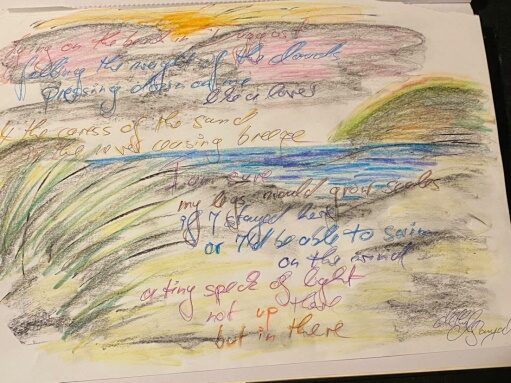 lying on the beach in August
feeling the weight of the clouds
pressing down on me
like a lover
& the caress of the sand
in the never ceasing breeze
I am sure
my legs would grow scales
if I stayed here
or I'd be able to sail
on the wind
a tiny speck of light
not up there
but in there